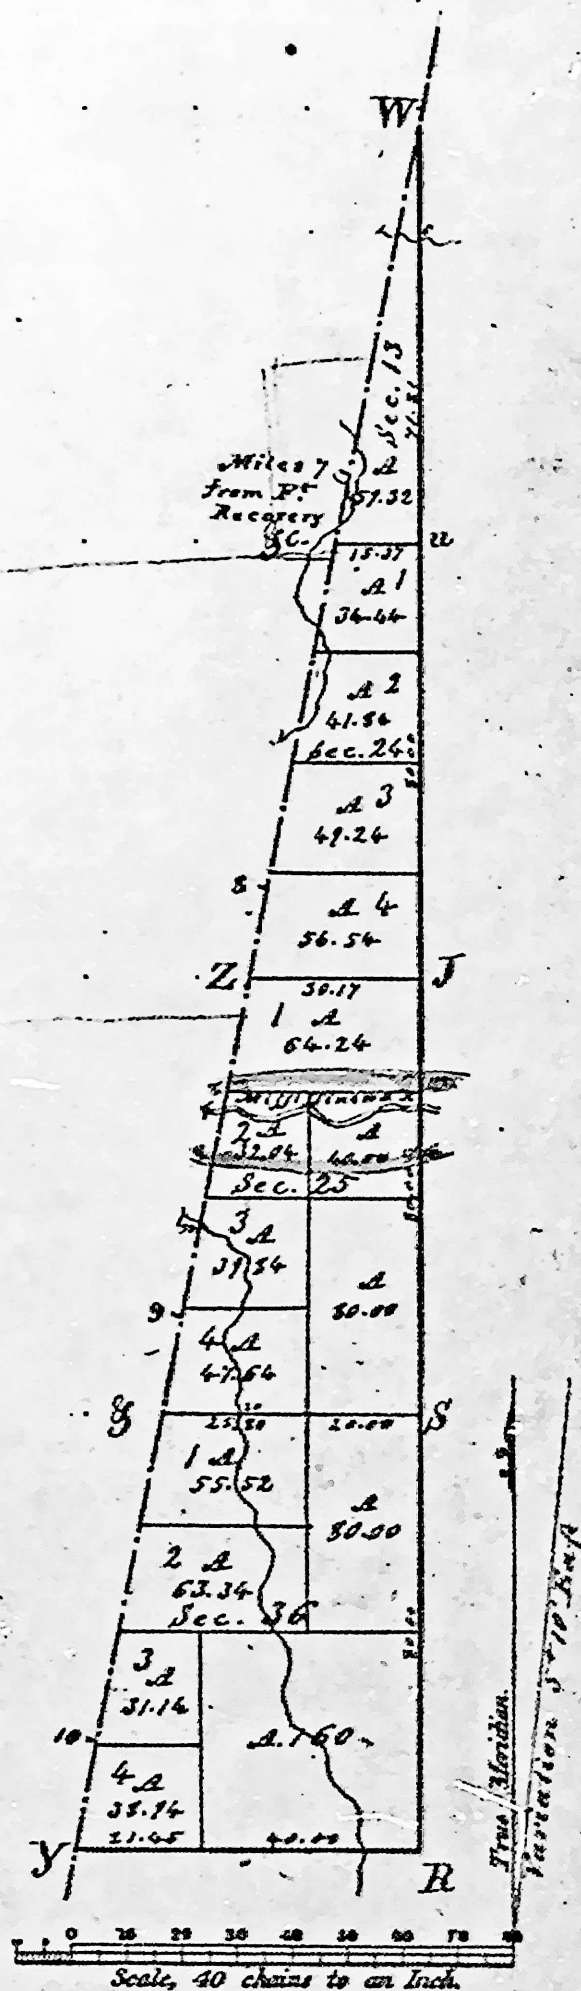 W
Sec. 13
71.81
A
57.32
Miles 7
from Ft.
Recovery
15.37
u
A 1
34.44
A 2
41.84
Sec. 24
80.00
A 3
49.24
8
A 4
56.54
Z
J
30.17
1 A
64.24
Missisinewa R
2 A
32.04
A
40.00
Sec. 25
80.00
3 A
39.84
A
80.00
9
4 A
47.64
25.30
20.00
S
1 A
55.52
A
80.00
2 A
63.34
Sec. 36
80.00
3 A
31.14
A. 160
10
4 A
38.94
21.45
40.00
Y
R
True Meridian.
Variation 5° 10' East
0 10 20 30 40 50 60 70 80
Scale, 40 chains to an Inch.